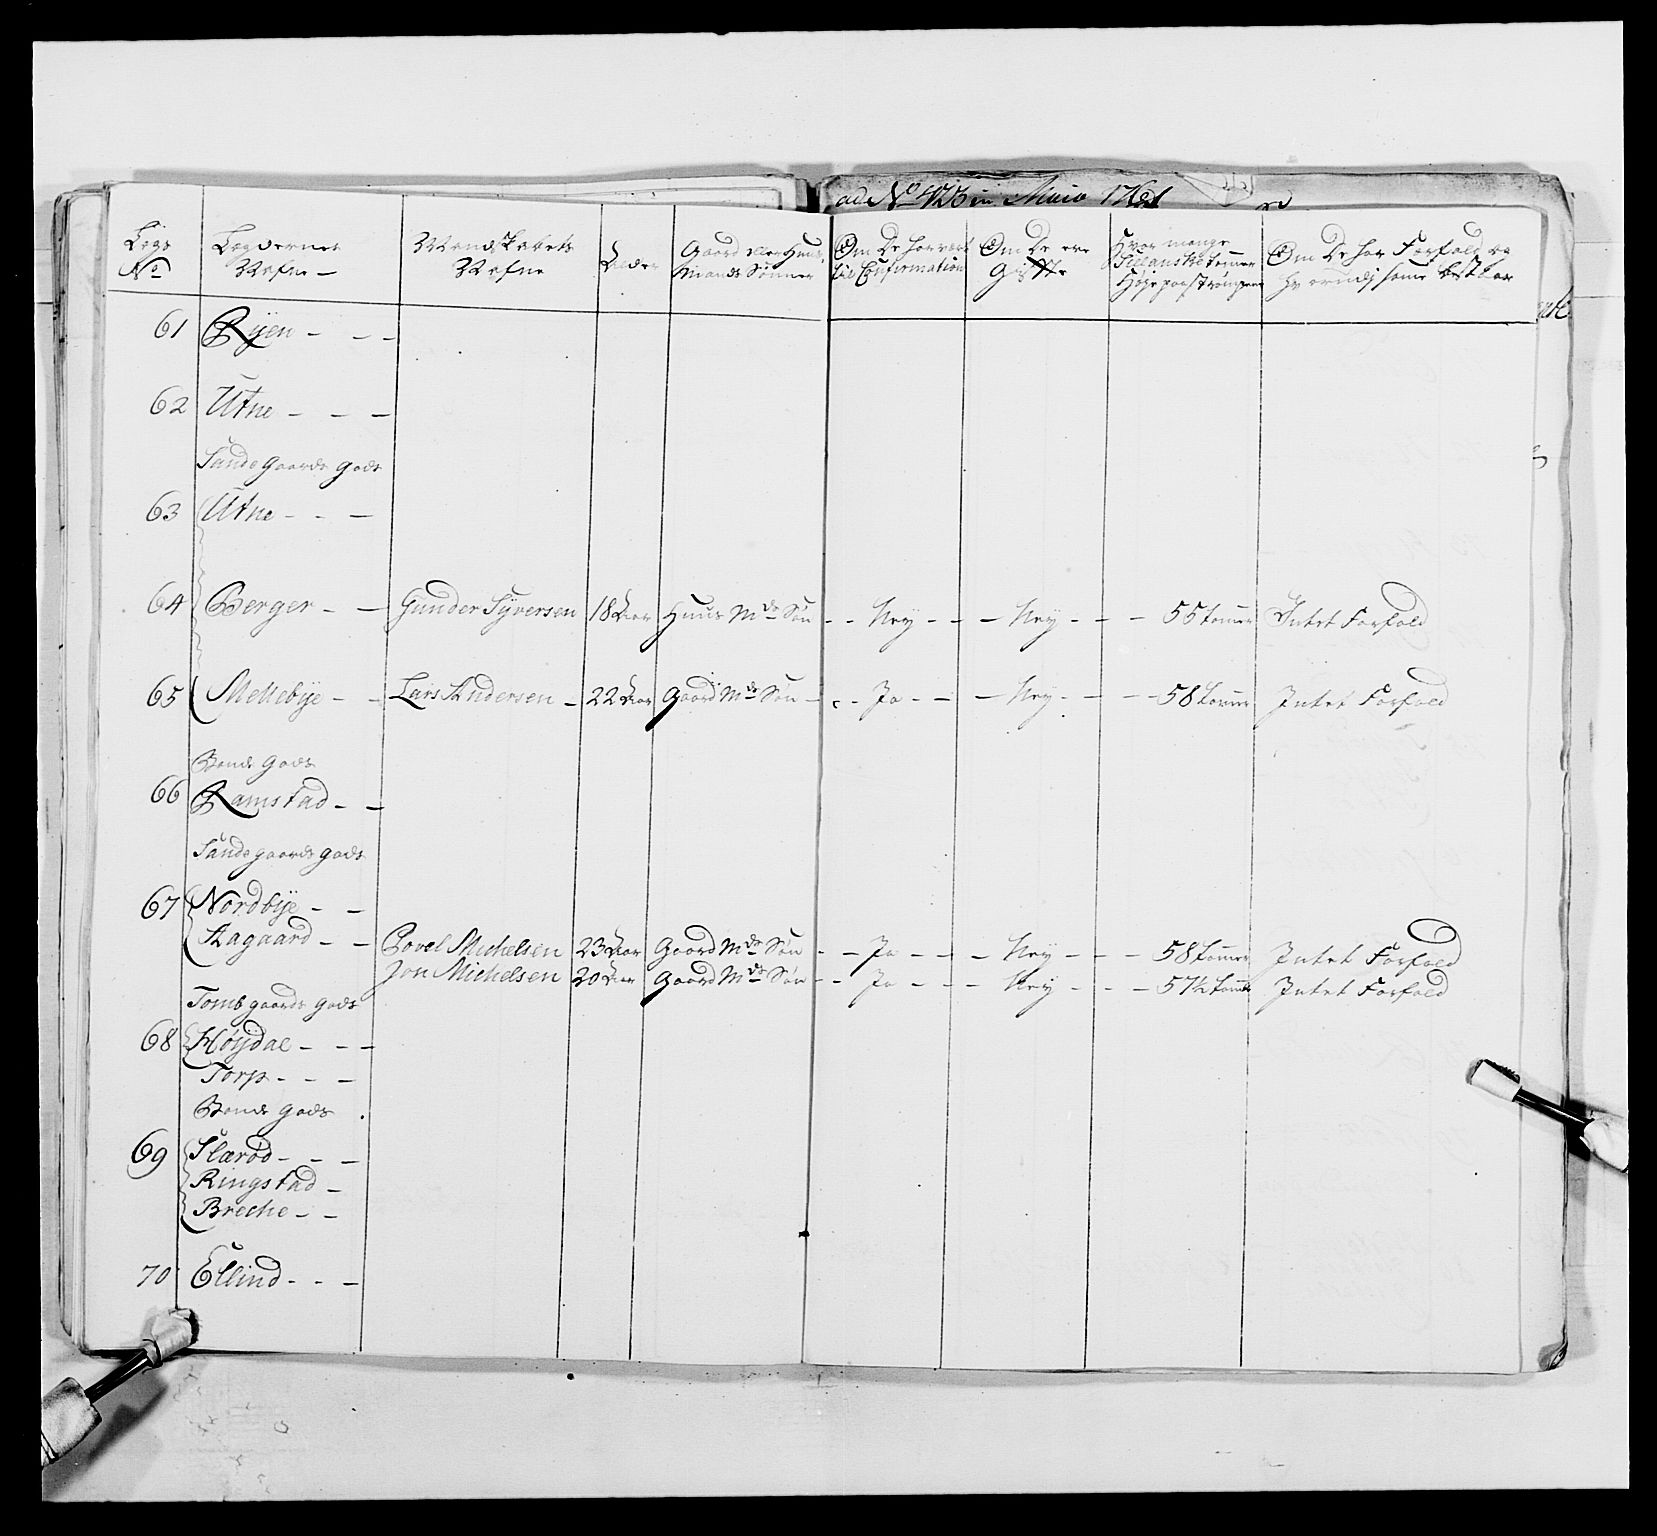 ad No 423 in Maio 1761
Legs No
Legdernes Nafne -
Mandskabets Nafne
Alder
Gaard eller Huus Mands Sønner
Om De har vært til Confirmation
Om De ere Gifte
Hvor mange Siellanske tommer Høje paa strømper
Om De har Forfald og hvorudj samme bestaar
61 Ryen - - -
62 Utne - - -
Sande gaards gods
63 Utne - - -
64 Berger - - Gunder Syversen 18 Aar Huus Mds Søn - - Ney - - - Ney - - - 55 tommer Intet Forfald
65 Mellebye - - Lars Andersen - 22 Aar Gaard Mds Søn - - - Ja - - - Ney - - - 58 tommer Intet Forfald
Bonde Gods
66 Ramstad - -
Sande gaards gods
67 Nordbye - -
Aagaard - - Povel Michelsen 23 Aar Gaard Mds Søn - - Ja - - - Ney - - - 58 tommer Intet Forfald
Jon Michelsen 20 Aar Gaard Mds Søn - - Ja - - - Ney - - - 57½ tommer Intet Forfald
Tomb gaards gods
68 Høydal - - -
Torp - - -
Bonde Gods
69 Slærød - - -
Ringstad -
Breche - -
70 Ellind - - -